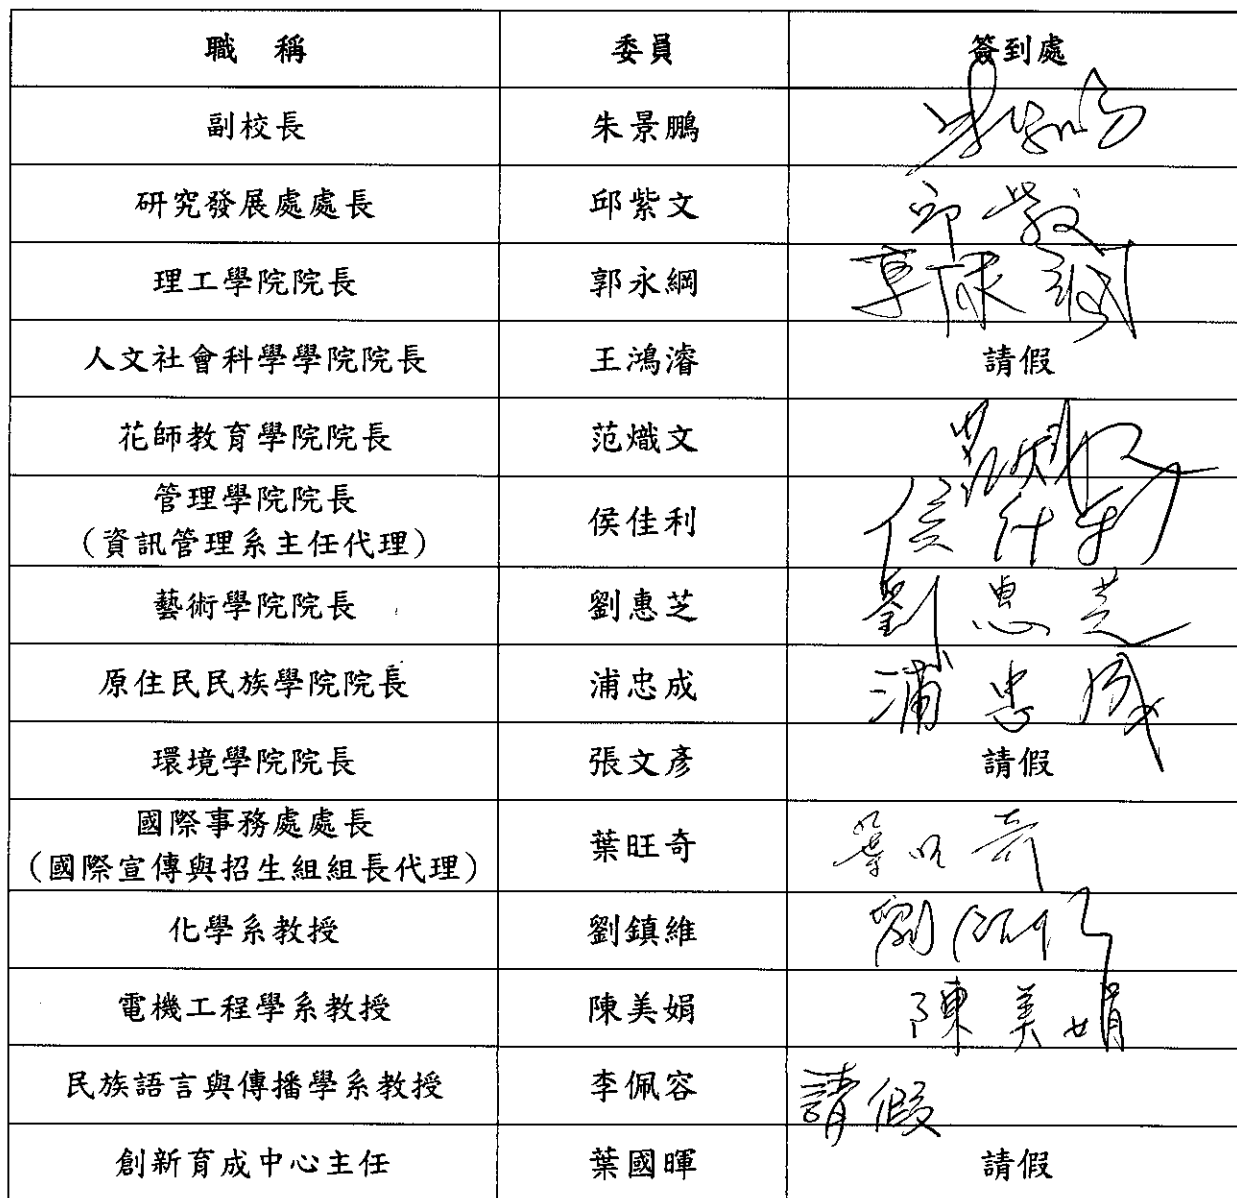 職 稱 委員 簽到處
副校長 朱景鵬
研究發展處處長 邱紫文 邱紫文
理工學院院長 郭永綱
人文社會科學學院院長 王鴻濬 請假
花師教育學院院長 范熾文
管理學院院長
(資訊管理系主任代理) 侯佳利 侯佳利
藝術學院院長 劉惠芝 劉惠芝
原住民民族學院院長 浦忠成 浦忠成
環境學院院長 張文彥 請假
國際事務處處長
(國際宣傳與招生組組長代理) 葉旺奇 葉旺奇
化學系教授 劉鎮維 劉鎮維
電機工程學系教授 陳美娟 陳美娟
民族語言與傳播學系教授 李佩容 請假
創新育成中心主任 葉國暉 請假